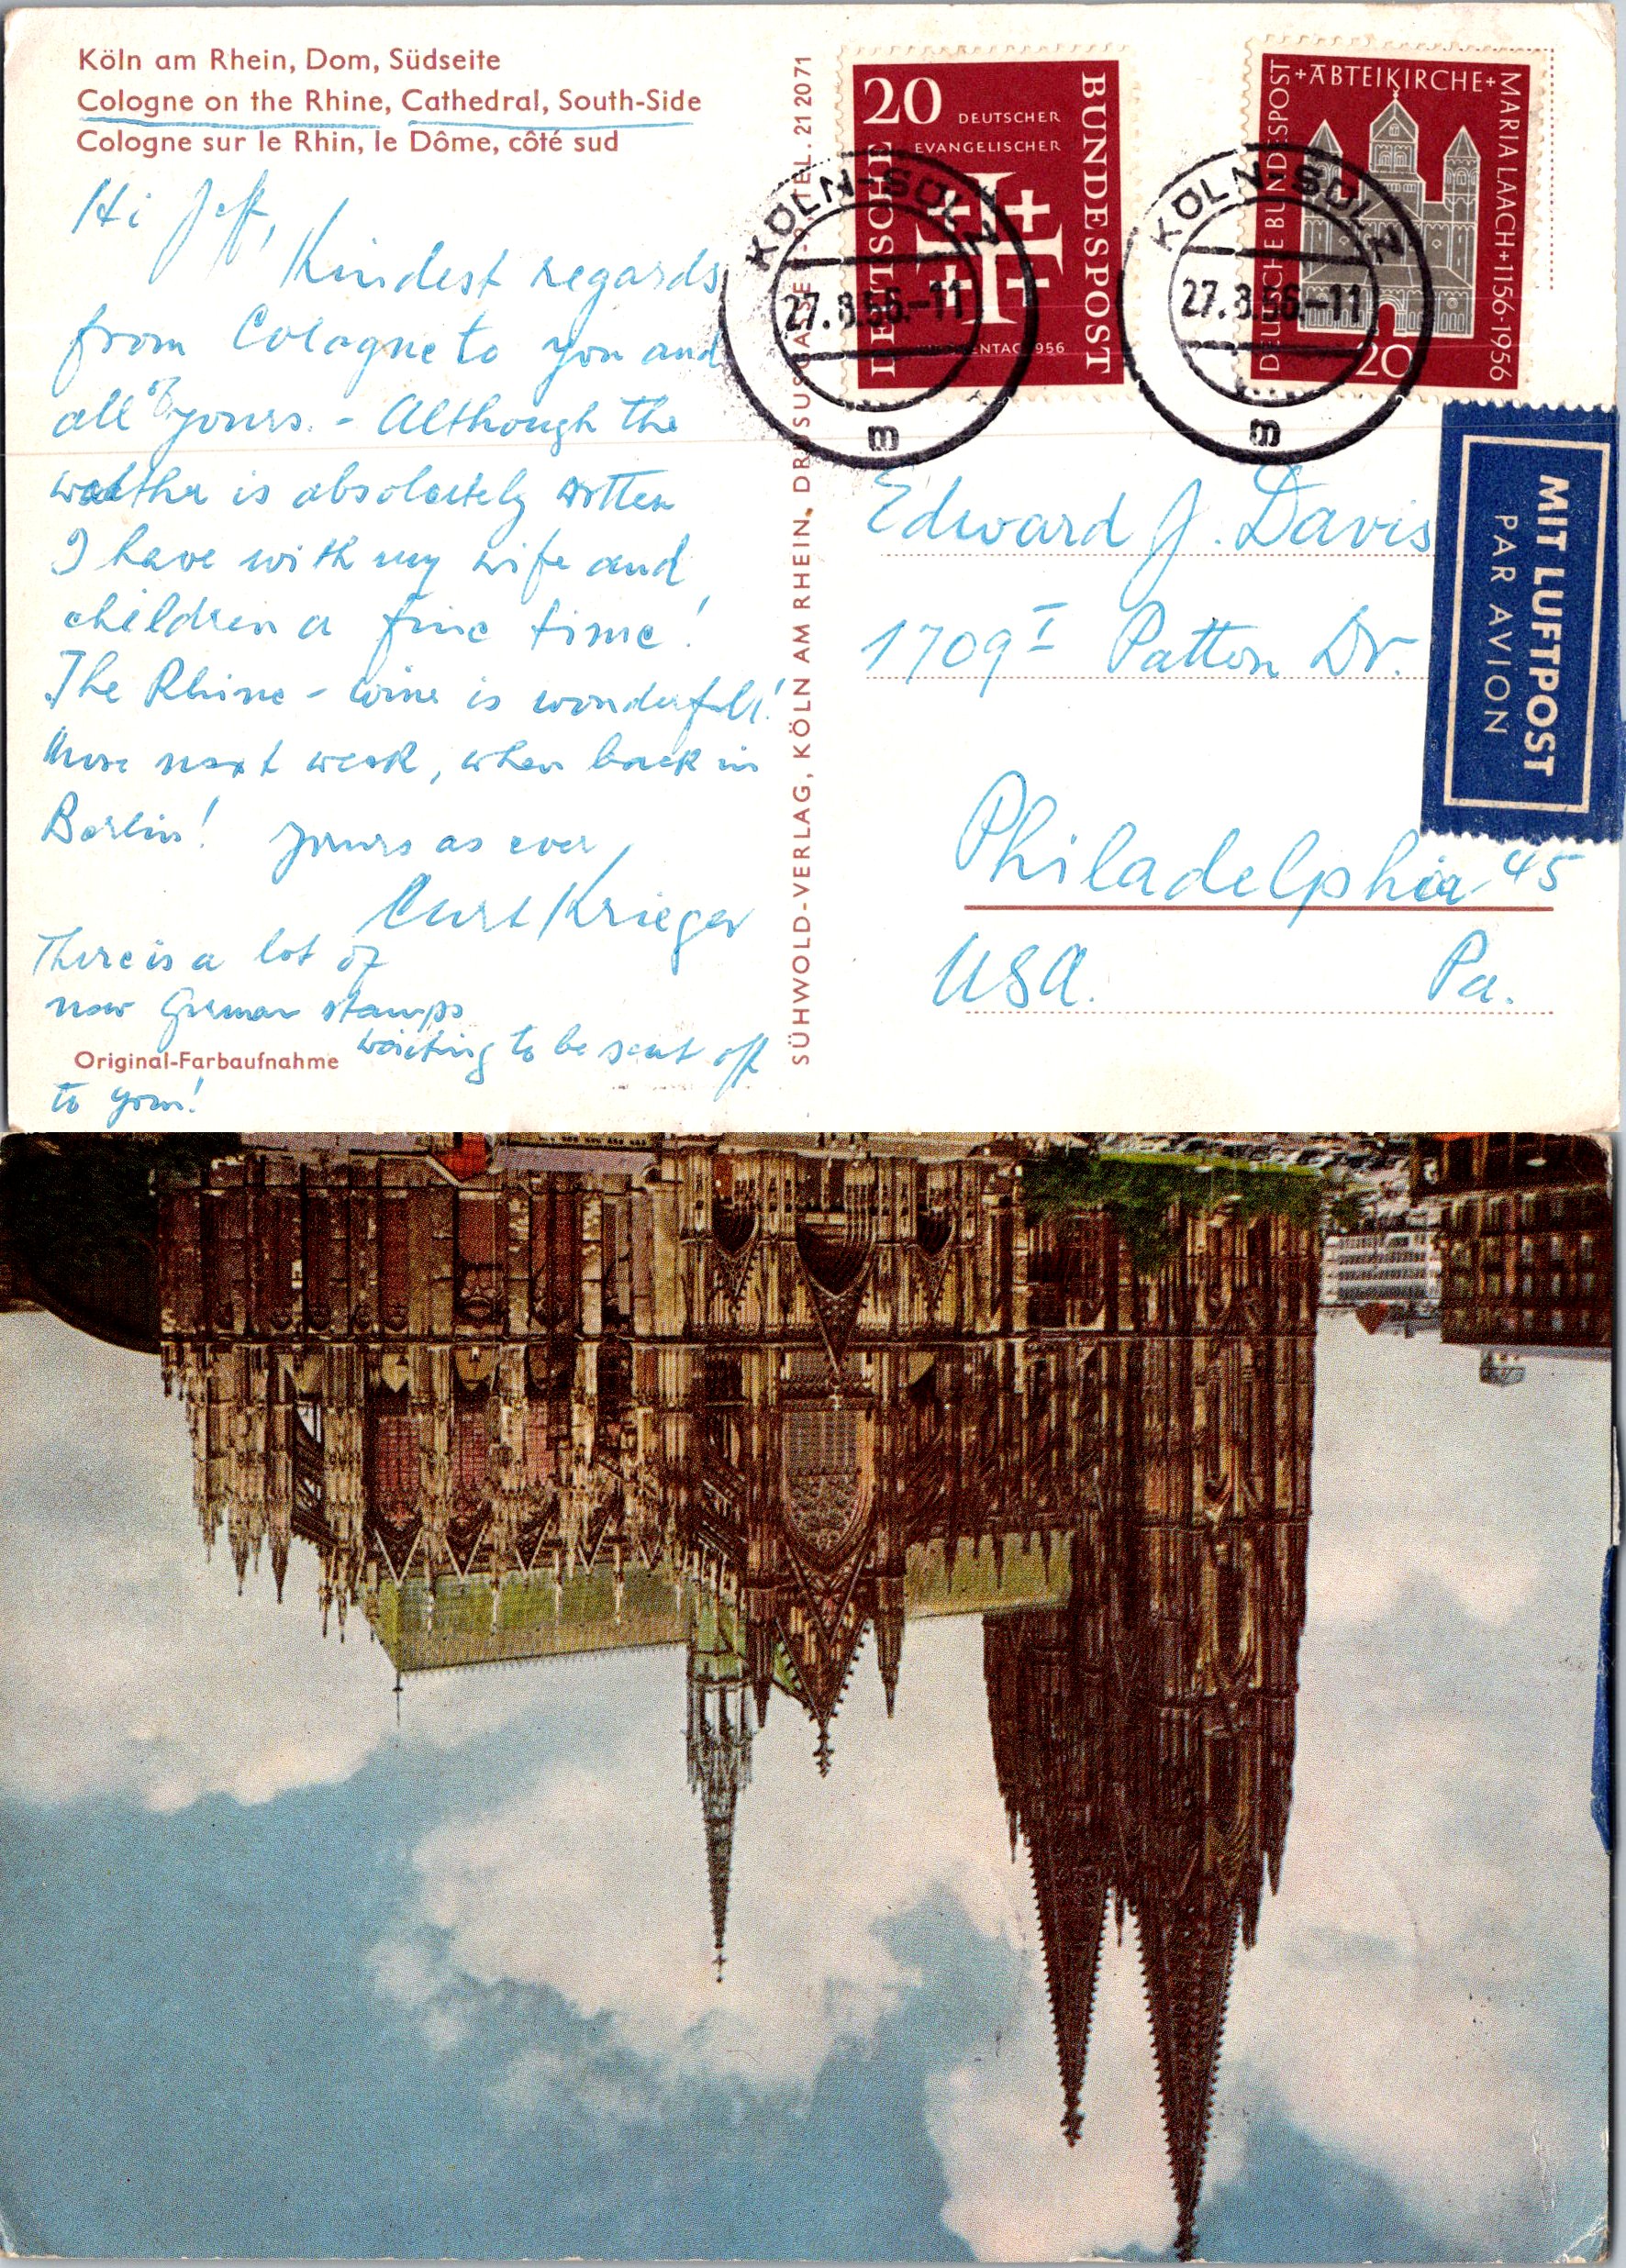 Köln am Rhein, Dom, Südseite
Cologne on the Rhine, Cathedral, South-Side
Cologne sur le Rhin, le Dôme, côté sud
Hi Jeff,
Kindest regards
from Cologne to you and
all of yours. - Although the
weather is absolutely rotten
I have with my wife and
children a fine time!
The Rhine-wine is wonderfull!
More next week, when back in
Berlin! Yours as ever,
Curt Krieger
There is a lot of
new German stamps
waiting to be sent off
to you!
Original-Farbaufnahme
SÜHWOLD-VERLAG, KÖLN AM RHEIN, DR. 21 2071
20
DEUTSCHER
EVANGELISCHER
DEUTSCHE
BUNDESPOST
1956
KÖLN-SÜLZ
27.8.56.-11
m
+ABTEIKIRCHE+
MARIA LAACH+1156·1956
DEUTSCHE BUNDESPOST
20
KÖLN-SÜLZ
27.8.56.-11
m
MIT LUFTPOST
PAR AVION
Edward J. Davis
1709 I Patton Dr.
Philadelphia 45
USA. Pa.